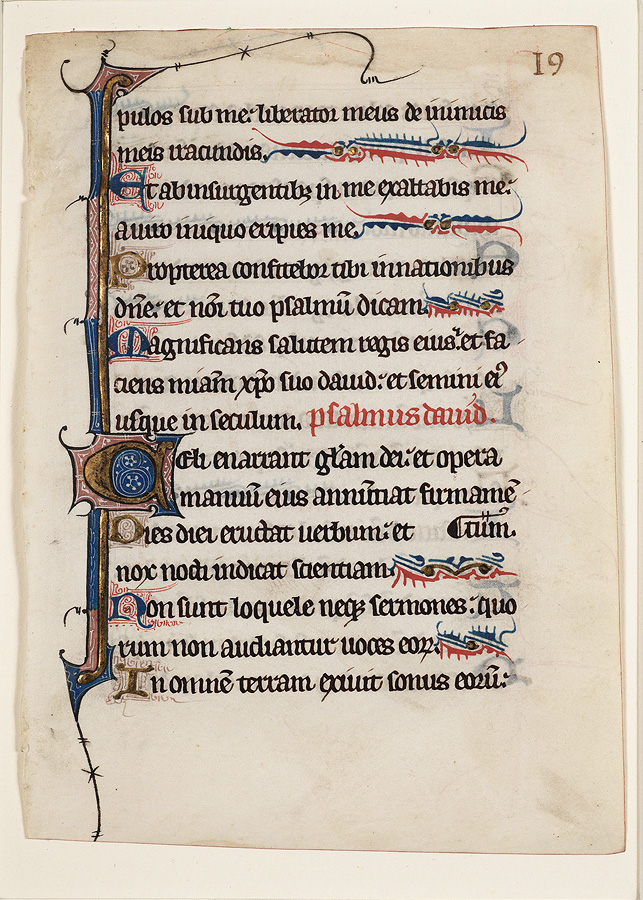 19
pulos sub me: liberator meus de inimicis
meis iracundis.
Et ab insurgentibꝫ in me exaltabis me:
a uiro iniquo eripies me.
Propterea confitebor tibi in nationibus
dn̄e: et nōī tuo psalmū dicam.
Magnificans salutem regis eius: et fa
ciens miām xp̄o suo dauid: et semini eiꝰ
usque in seculum. psalmus dauid.
Celi enarrant glām dei: et opera
manuum eius annūtiat firmamē
Dies diei eructat uerbum: et tum.
nox nocti indicat scientiam.
Non sunt loquele neqꝫ sermones: quo
rum non audiantur uoces eoꝝ:
In omnē terram exiuit sonus eorū: